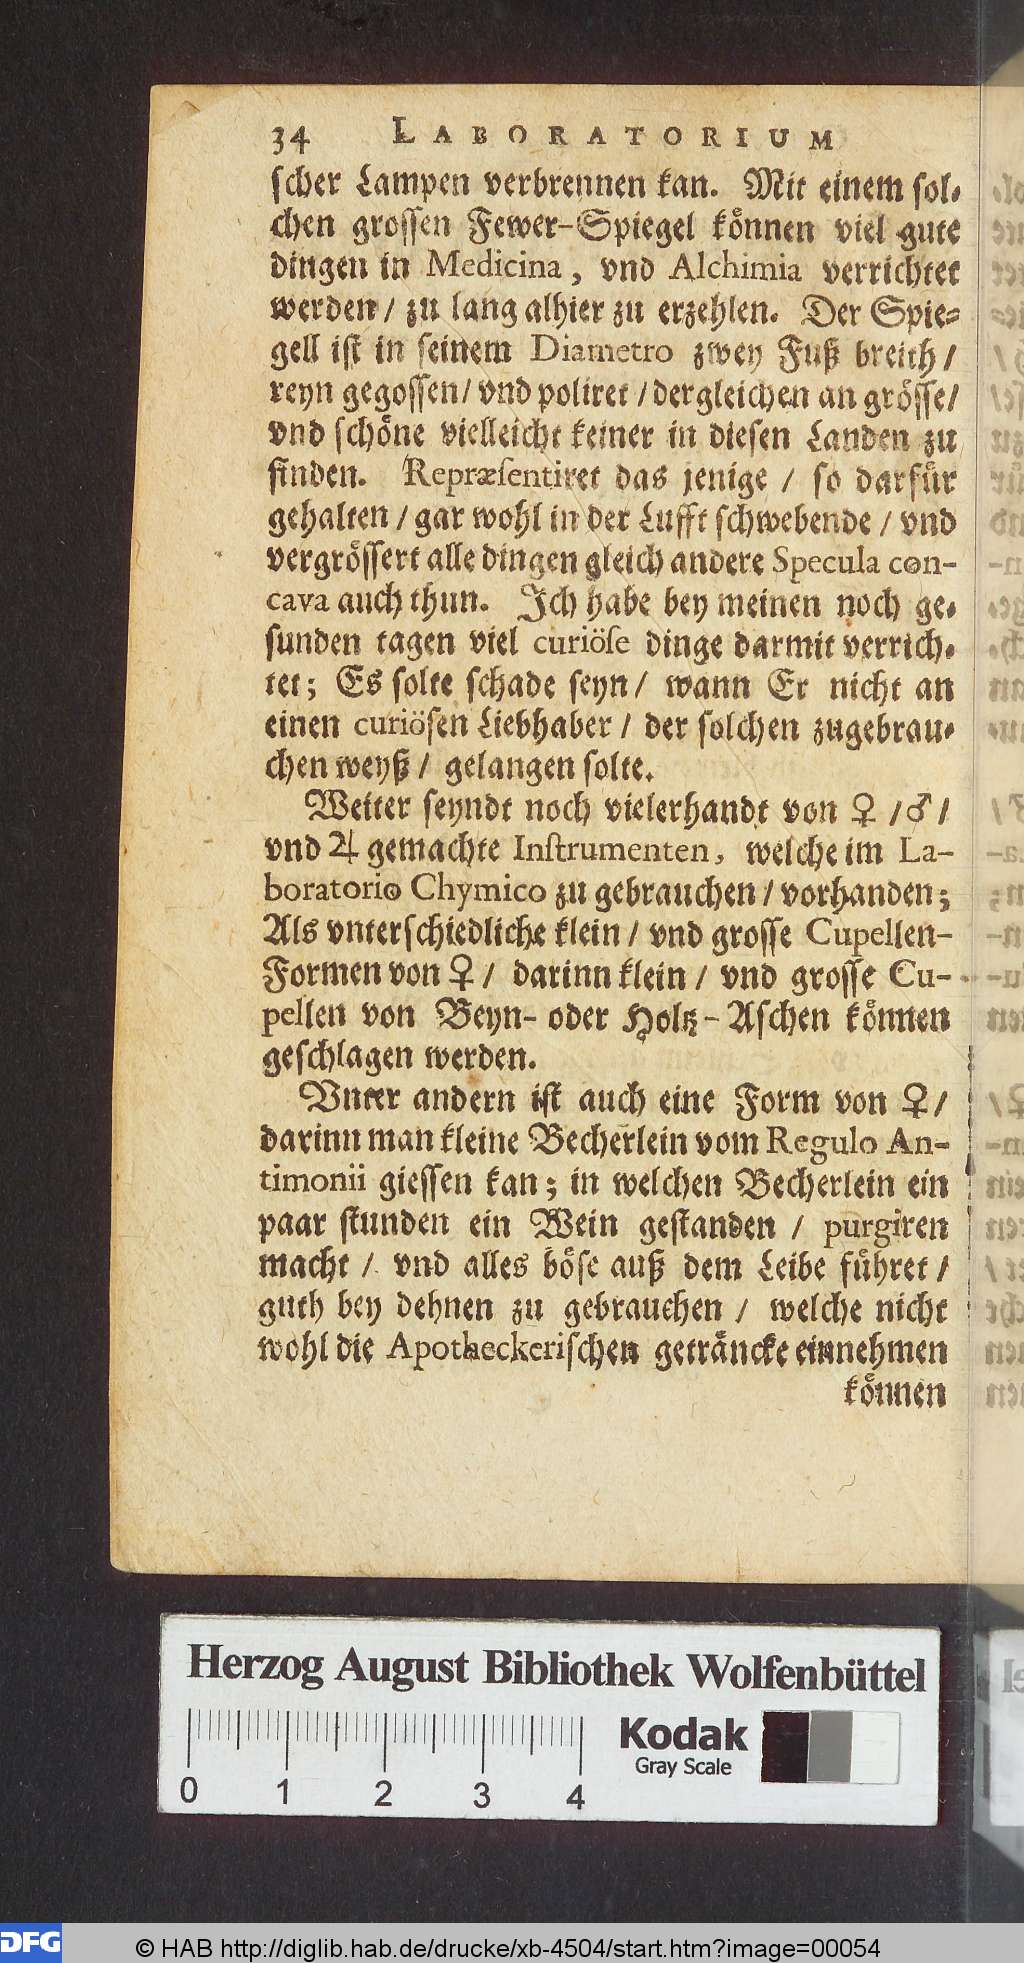 34 LABORATORIUM
scher Lampen verbrennen kan. Mit einem sol-
chen grossen Fewer-Spiegel können viel gute
dingen in Medicina, vnd Alchimia verrichtet
werden / zu lang alhier zu erzehlen. Der Spie-
gell ist in seinem Diametro zwey Fuß breith /
reyn gegossen / vnd poliret / dergleichen an grösse /
vnd schöne vielleicht keiner in diesen Landen zu
finden. Repræsentiret das jenige / so darfür
gehalten / gar wohl in der Lufft schwebende / vnd
vergrössert alle dingen gleich andere Specula con-
cava auch thun. Ich habe bey meinen noch ge-
sunden tagen viel curiöse dinge darmit verrich-
tet; Es solte schade seyn / wann Er nicht an
einen curiösen Liebhaber / der solchen zugebrau-
chen weyß / gelangen solte.
Weiter seyndt noch vielerhandt von ♀ / ♂ /
vnd ♃ gemachte Instrumenten, welche im La-
boratorio Chymico zu gebrauchen / vorhanden;
Als vnterschiedliche klein / vnd grosse Cupellen-
Formen von ♀ / darinn klein / vnd grosse Cu-
pellen von Beyn- oder Holtz-Aschen können
geschlagen werden.
Vnter andern ist auch eine Form von ♀ /
darinn man kleine Becherlein vom Regulo An-
timonii giessen kan; in welchen Becherlein ein
paar stunden ein Wein gestanden / purgiren
macht / vnd alles böse auß dem Leibe führet /
guth bey dehnen zu gebrauchen / welche nicht
wohl die Apotheckerischen geträncke einnehmen
können
Herzog August Bibliothek Wolfenbüttel
Kodak
Gray Scale
0 1 2 3 4
DFG
© HAB http://diglib.hab.de/drucke/xb-4504/start.htm?image=00054